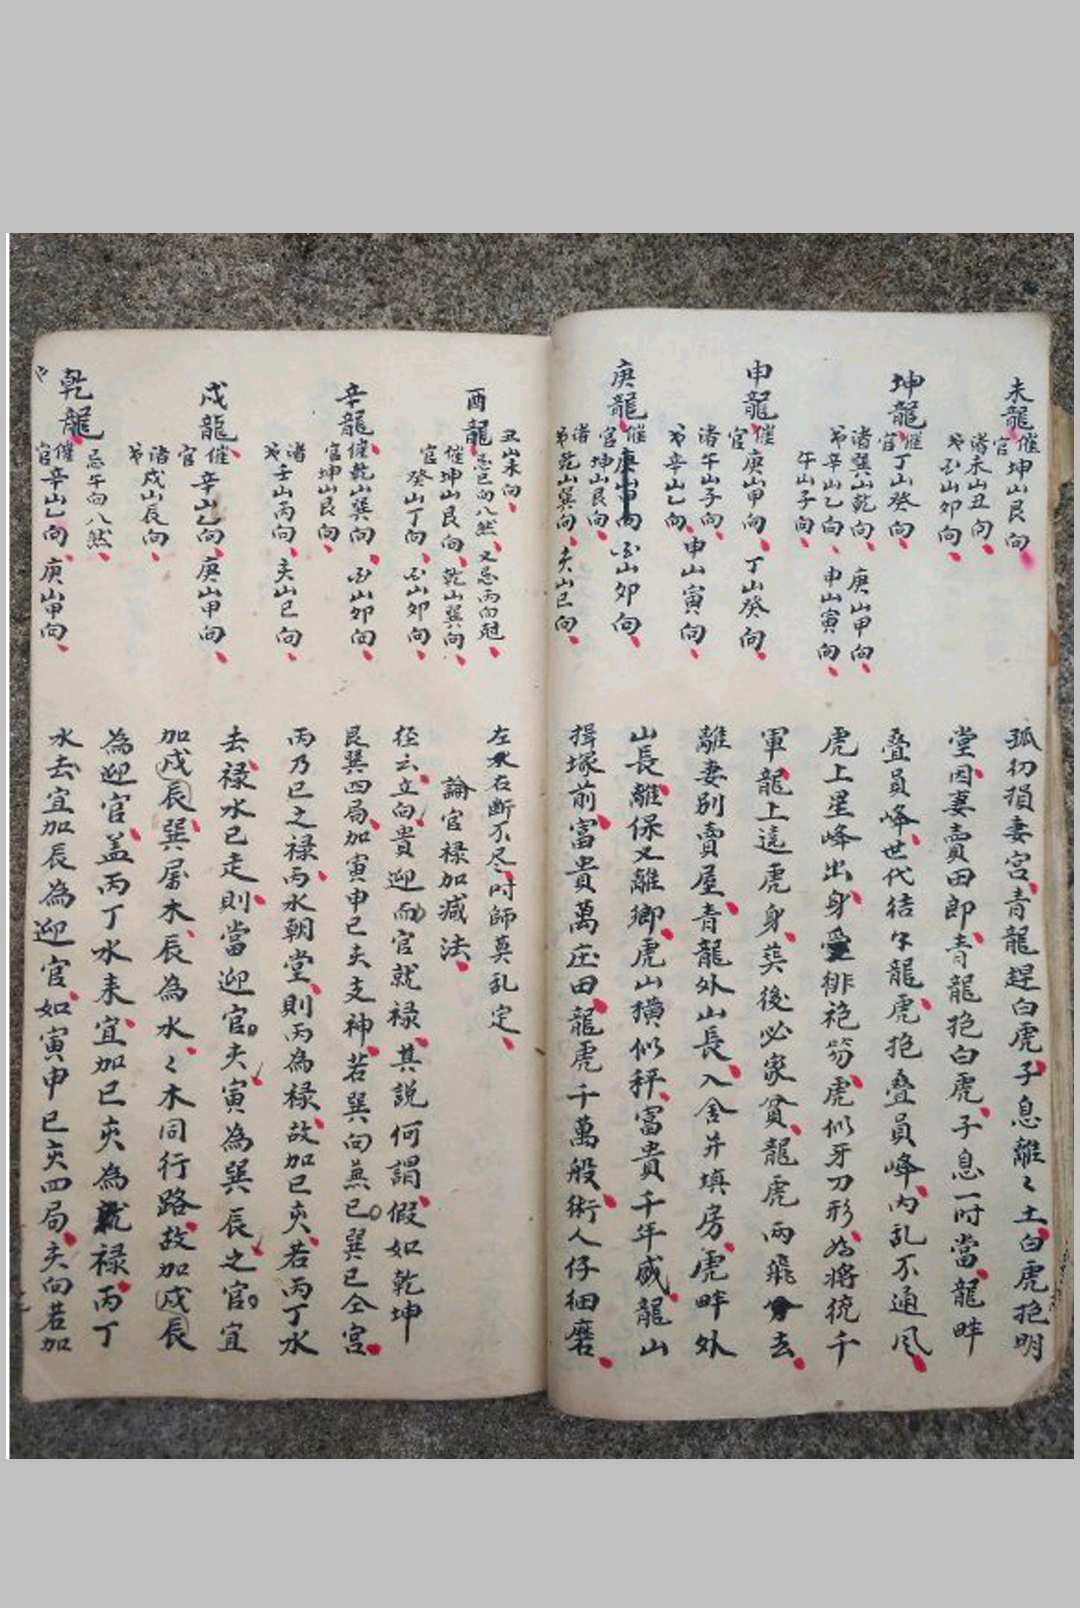 未龍
催官坤山艮向
渚未山丑向
弟酉山卯向
坤龍
催官丁山癸向
渚巽山乾向 庚山甲向
弟辛山乙向 申山寅向
午山子向
申龍
催官庚山甲向 丁山癸向
渚午山子向 申山寅向
弟辛山乙向
庚龍
催官庚山甲向 酉山卯向
坤山艮向
渚
弟乾山巽向 亥山巳向
孤初損妻宮青龍趕白虎子息離〻土白虎抱明
堂因妻賣田郎青龍抱白虎子息一时當龍畔
叠員峰世代結 龍虎抱叠員峰内乱不通风
虎上星峰出身 緋袍笏虎似牙刀形為將統千
軍龍上遠虎身葵後必家貧龍虎兩飛分去
離妻別賣屋青龍外山長入舍并填房虎畔外
山長離保又離鄉虎山橫似秤富貴千年盛龍山
揖塚前富貴萬庄田龍虎千萬般術人仔細磨
丑山未向
酉龍
忌巳向八然 又忌丙向尅
催官坤山艮向 乾山巽向
癸山丁向 酉山卯向
辛龍
催官乾山巽向 酉山卯向
坤山艮向
渚弟壬山丙向 亥山巳向
戌龍
催官辛山乙向 庚山甲向
渚弟戌山辰向
乾龍
忌午向八然
催官辛山乙向 庚山甲向
左來右断不尽时師莫乱定
論官禄加減法
径云立向貴迎而官就禄其說何謂假如乾坤
艮巽四局加寅申巳亥支神若巽向兼巳巽巳仝宮
丙乃巳之禄丙水朝堂則丙為禄故加巳亥若丙丁水
去禄水已走則當迎官亥寅為巽辰之官宜
加戌辰巽屬木辰為水〻木同行路故加戌辰
為迎官盖丙丁水来宜加巳亥為就禄丙丁
水去宜加辰為迎官如寅申巳亥四局亥向若加